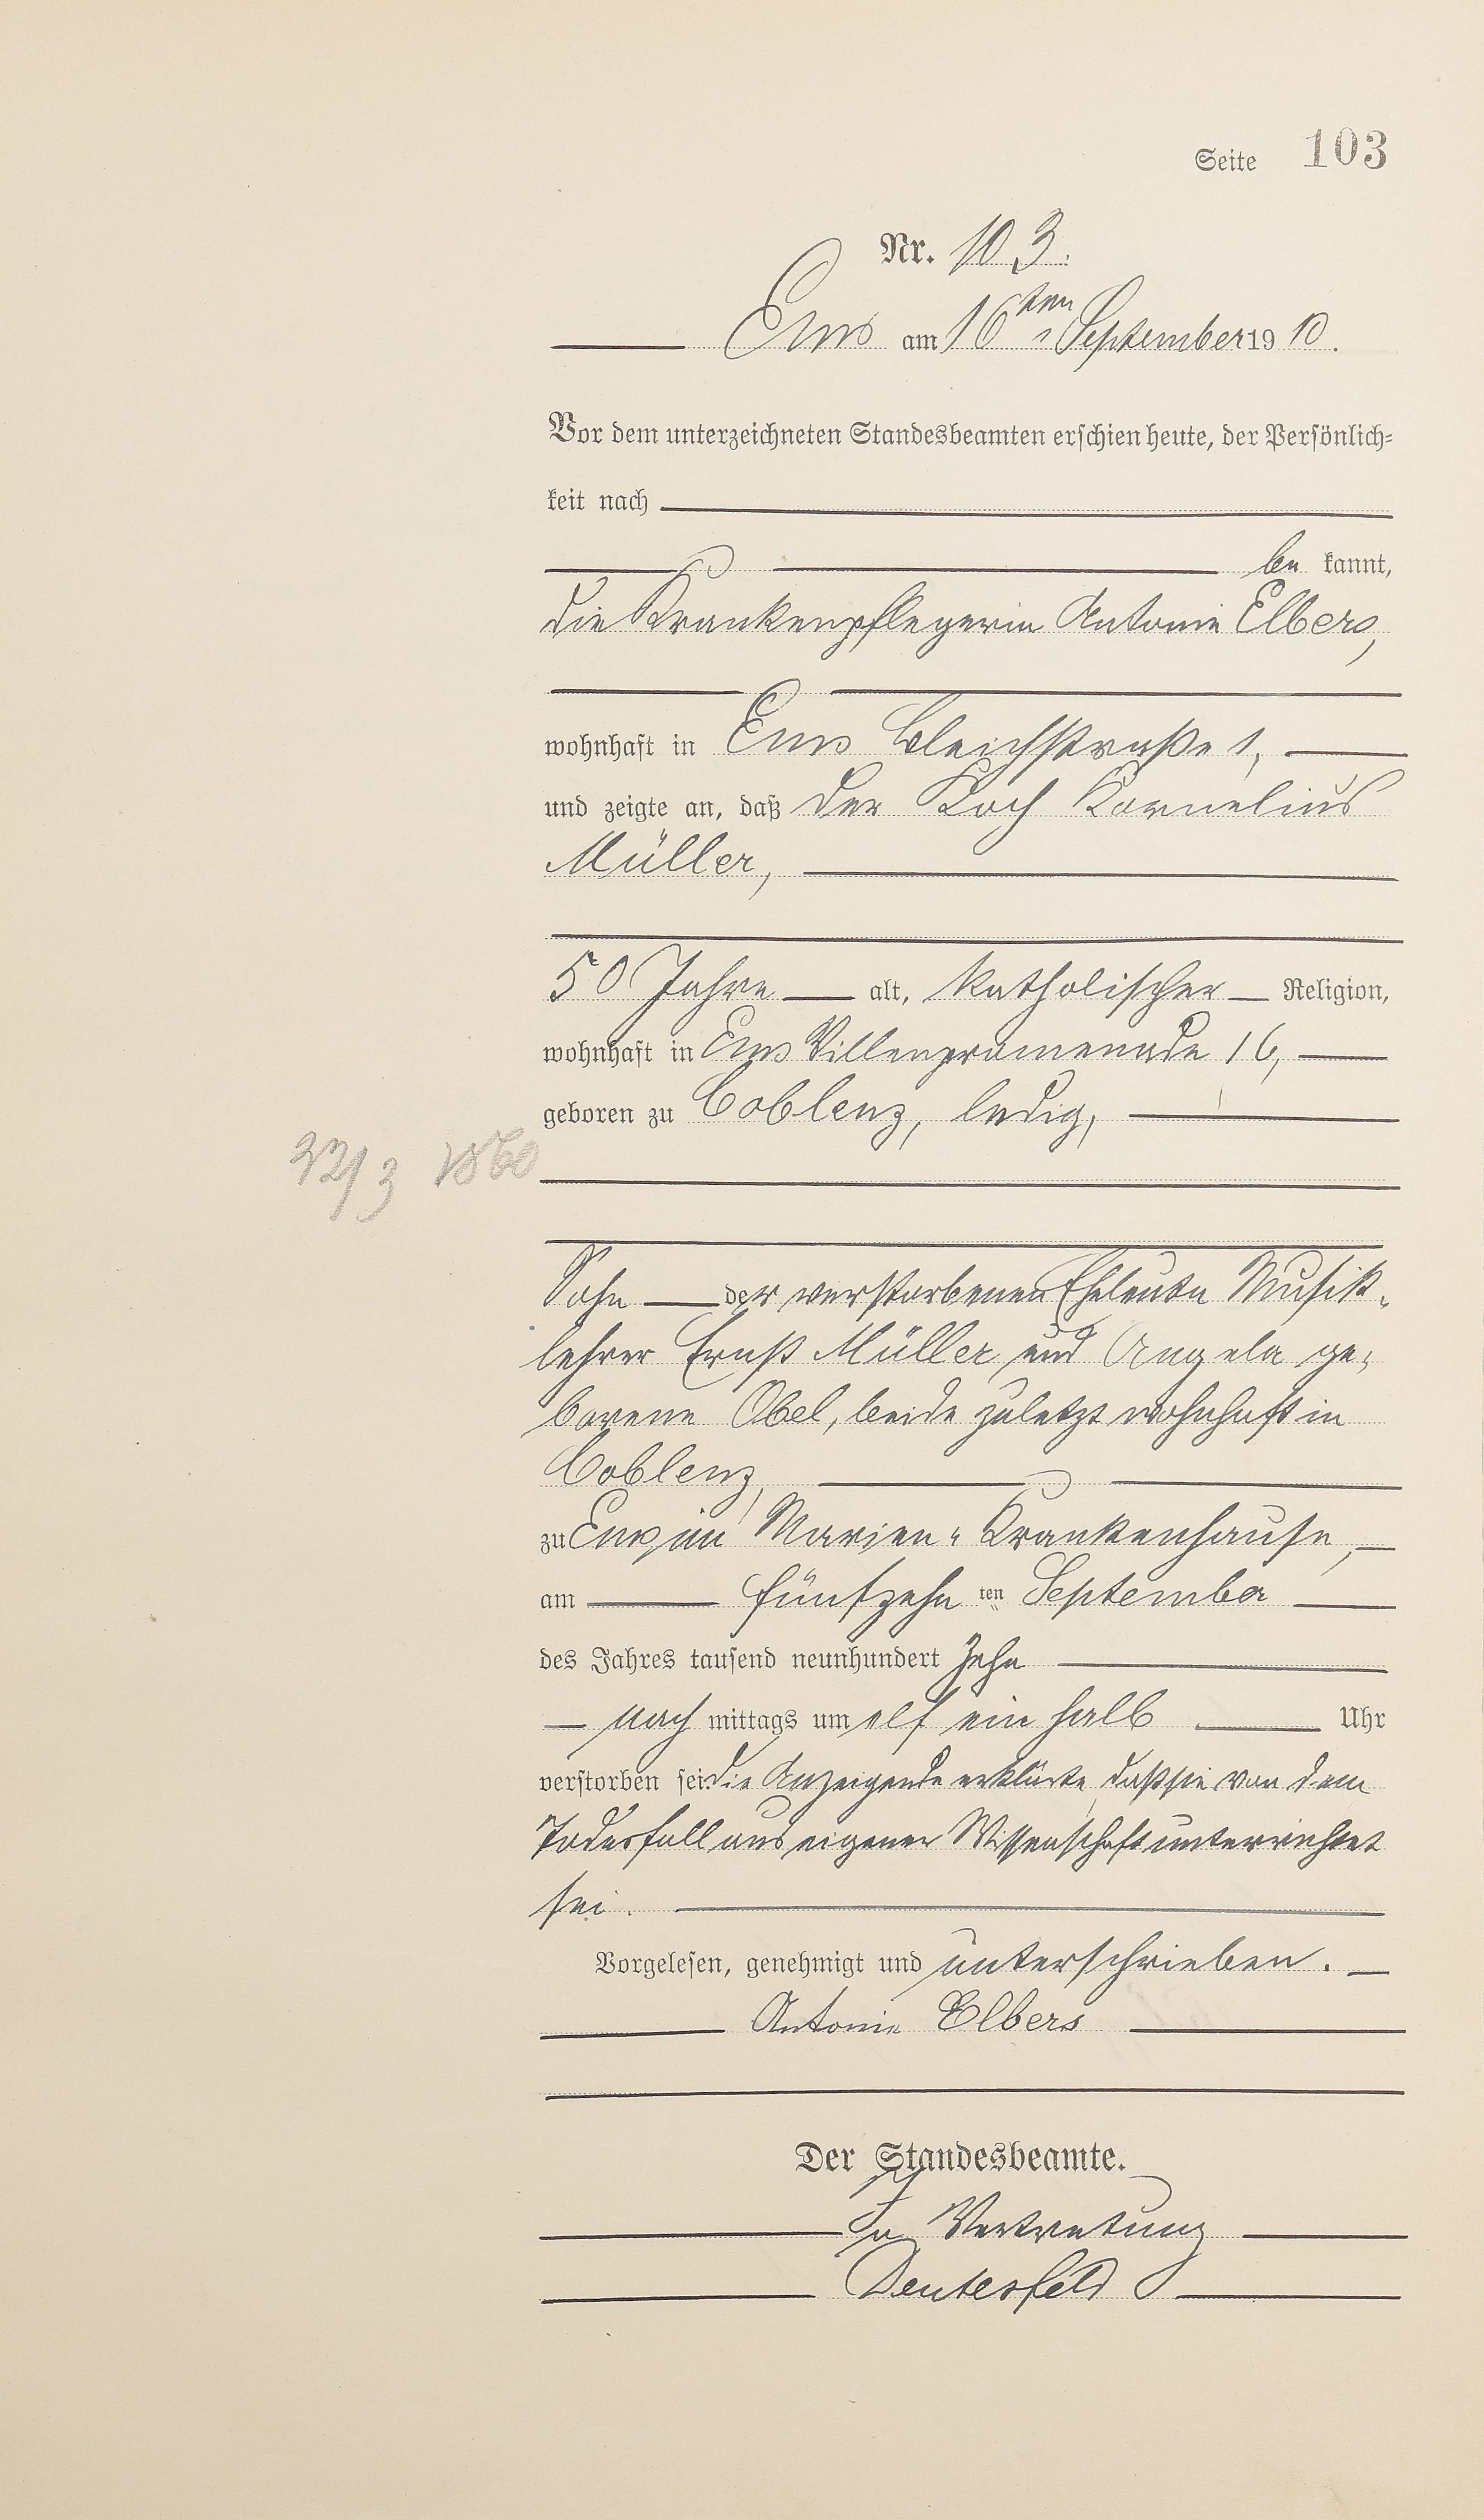 Seite 103
Nr. 103.
Ems am 16ten September 1910.
Vor dem unterzeichneten Standesbeamten erschien heute, der Persönlich=
keit nach
be kannt,
die Krankenpflegerin Antonie Elbers,
wohnhaft in Ems Bleichstraße 1,
und zeigte an, daß der Koch Kornelius
Müller,
50 Jahre alt, katholischer Religion,
wohnhaft in Ems Villenpromenade 16,
geboren zu Coblenz, ledig,
22/3 1860
Sohn der verstorbenen Eheleute Musik-
lehrer Ernst Müller und Angela ge-
borene Obel, beide zuletzt wohnhaft in
Coblenz,
zu Ems, im Marien-Krankenhause,
am fünfzehn ten September
des Jahres tausend neunhundert zehn
nach mittags um elf ein halb Uhr
verstorben sei. Die Anzeigende erklärte, daß sie von dem
Todesfall aus eigener Wissenschaft unterrichtet
sei.
Vorgelesen, genehmigt und unterschrieben.
Antonie Elbers
Der Standesbeamte.
In Vertretung